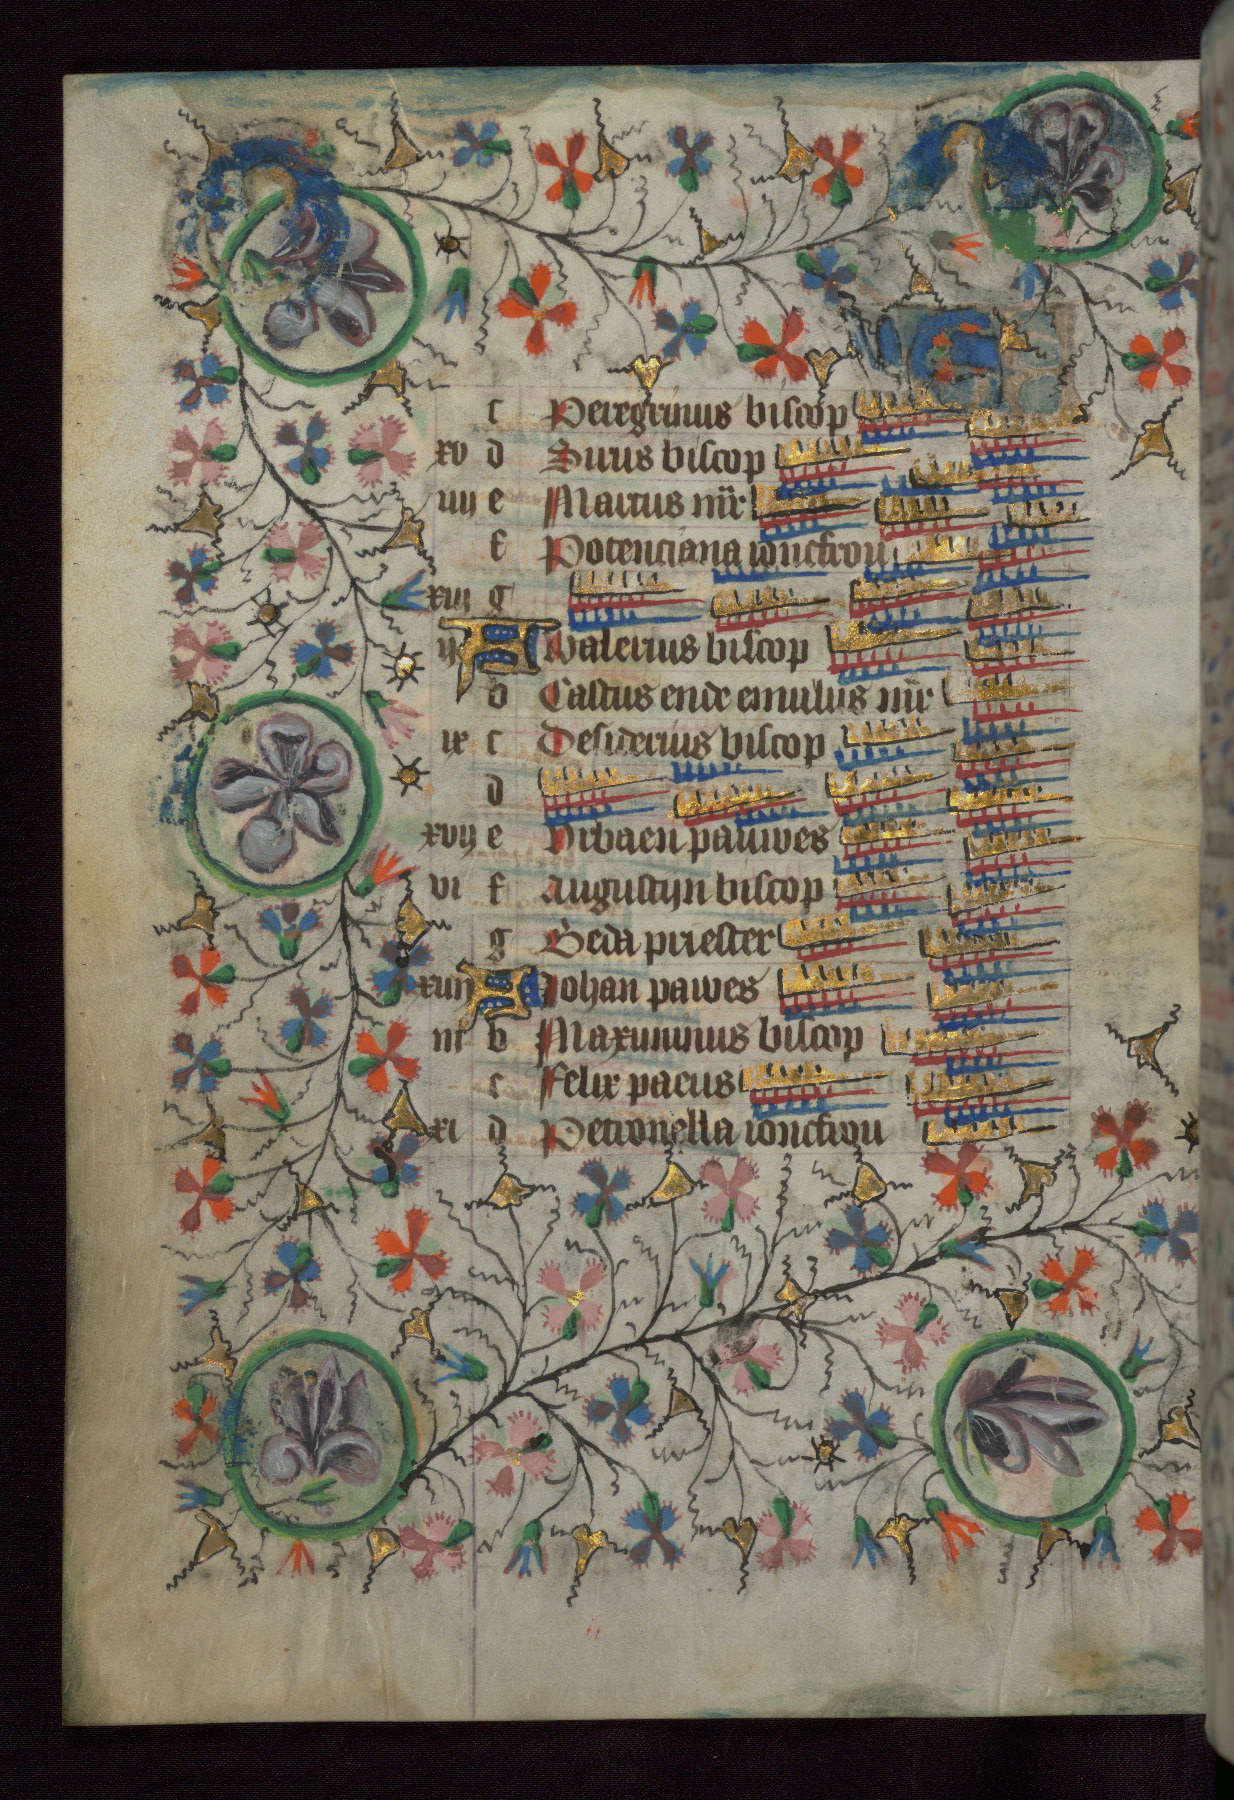 c Peregrinus biscop
xv d Sirus biscop
iiij e Martus mr̄
f Potenciana ioncfrou
xiij g
ij A Valerius biscop
b Castus ende emulus mr̄
ix c Desiderius biscop
d
xvij e Vrbaen pauwes
vi f Augustijn biscop
g Beda priester
xiiij A Johan pawes
iij b Maximinus biscop
c Felix paeus
xi d Petronella ioncfrou